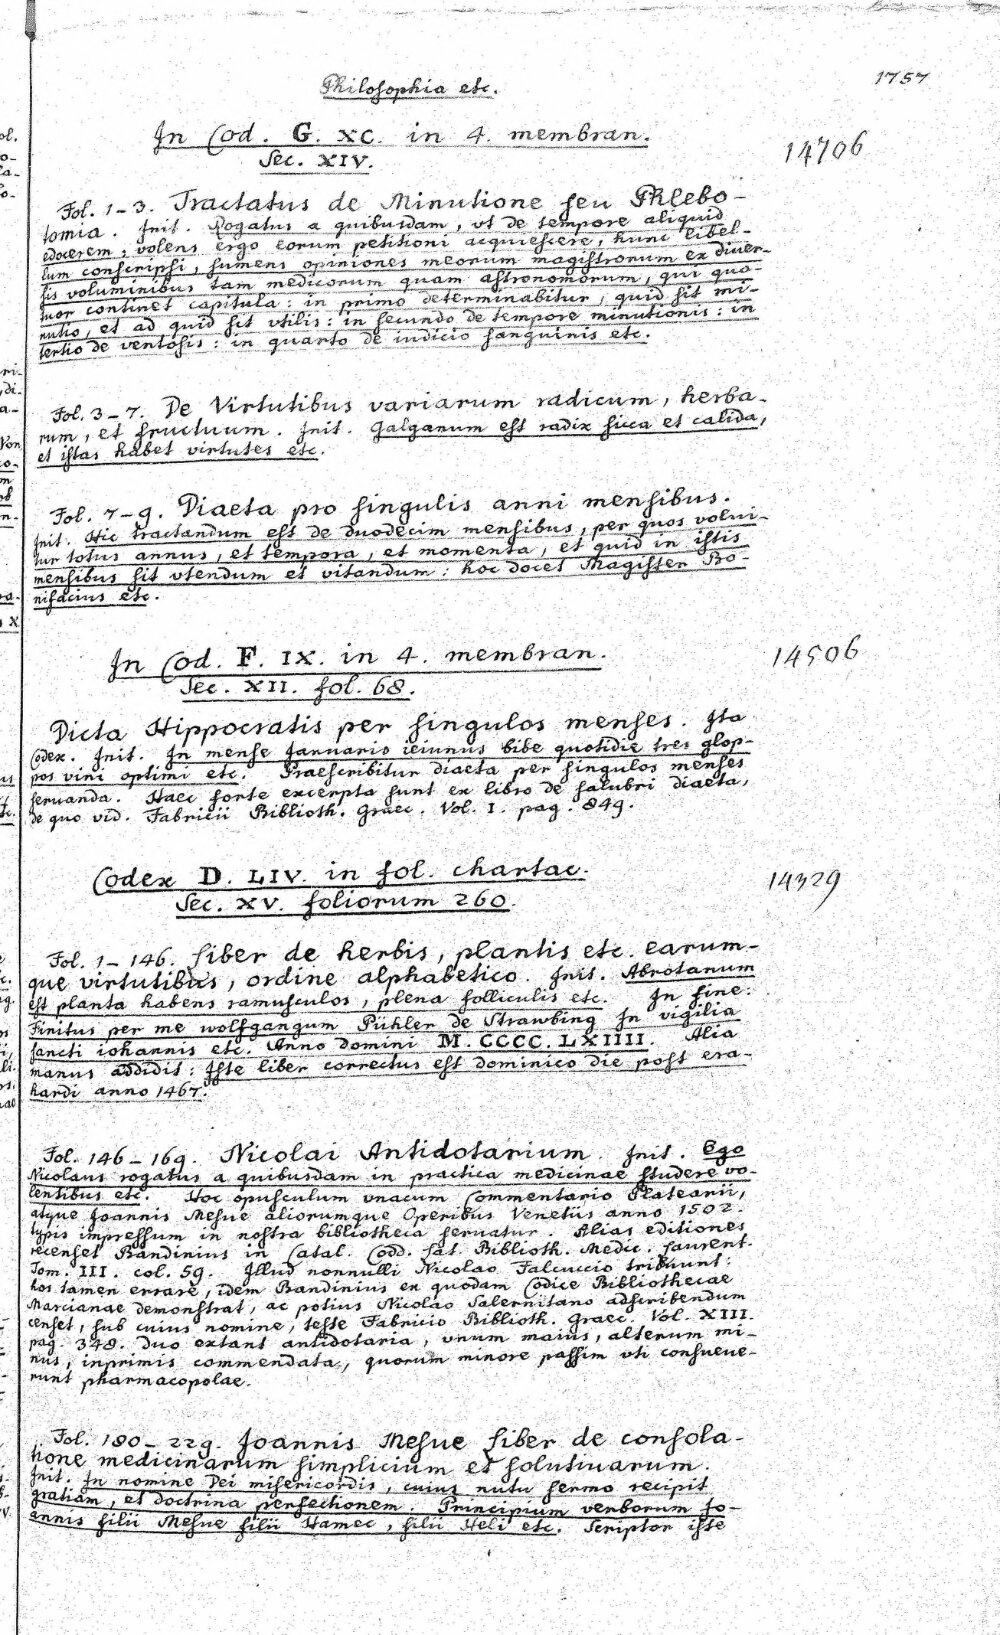 1757
Philosophia etc.
In Cod. G. XC. in 4. membran.
Sec. XIV.
14706
Fol. 1–3. Tractatus de Minutione seu Phlebo-
tomia. Init. Rogatus a quibusdam, vt de tempore aliquid
edocerem, volens ergo eorum petitioni acquiescere, hunc libel-
lum conscripsi, sumens opiniones meorum magistrorum ex diver-
sis voluminibus tam medicorum quam astronomorum, qui qua-
tuor continet capitula: in primo determinabitur, quid sit mi-
nutio, et ad quid sit vtilis: in secundo de tempore minutionis: in
tertio de ventosis: in quarto de iudicio sanguinis etc.
Fol. 3–7. De Virtutibus variarum radicum, herba-
rum, et fructuum. Init. Galganum est radix sicca et calida,
et istas habet virtutes etc.
Fol. 7–9. Diaeta pro singulis anni mensibus.
Init. Hic tractandum est de duodecim mensibus, per quos volui-
tur totus annus, et tempora, et momenta, et quid in istis
mensibus sit vtendum et vitandum: hoc docet Magister Bo-
nifacius etc.
In Cod. F. IX. in 4. membran.
Sec. XII. fol. 68.
14506
Dicta Hippocratis per singulos menses. Ita
Codex. Init. In mense Januario ieiunus bibe quotidie tres glop-
pos vini optimi etc. Praescribitur diaeta per singulos menses
seruanda. Haec forte excerpta sunt ex libro de salubri diaeta,
de quo vid. Fabricii Biblioth. Graec. Vol. I. pag. 849.
Codex D. LIV. in fol. chartac.
Sec. XV. foliorum 260.
14329
Fol. 1–146. Liber de herbis, plantis etc. earum-
que virtutibus, ordine alphabetico. Init. Abrotanum
est planta habens ramusculos, plena folliculis etc. In fine:
Finitus per me wolfgangum Pühler de Strawbing In vigilia
sancti iohannis etc. Anno domini M. CCCC. LXIIII. Alia
manus addidit: Iste liber correctus est dominico die post era-
hardi anno 1467.
Fol. 146–169. Nicolai Antidotarium. Init. Ego
Nicolaus rogatus a quibusdam in practica medicinae studere vo-
lentibus etc. Hoc opusculum vnacum Commentario Plateanii,
atque Joannis Mesue aliorumque Operibus Venetiis anno 1502.
typis impressum in nostra bibliotheca seruatur. Alias editiones
recenset Bandinius in Catal. Codd. lat. Biblioth. Medic. Laurent.
Tom. III. col. 59. Illud nonnulli Nicolao Falcuccio tribuunt:
hos tamen errare, idem Bandinius ex quodam Codice Bibliothecae
Marcianae demonstrat, ac potius Nicolao Salernitano adscribendum
censet, sub cuius nomine, teste Fabricio Biblioth. Graec. Vol. XIII.
pag. 348. duo extant antidotaria, vnum maius, alterum mi-
nus, inprimis commendata, quorum minore passim vti consueue-
runt pharmacopolae.
Fol. 180–229. Joannis Mesue Liber de consola-
tione medicinarum simplicium et solutiuarum.
Init. In nomine Dei misericordis, cuius nutu sermo recipit
gratiam, et doctrina perfectionem. Principium verborum Jo-
annis filii Mesue filii Hamec, filii Heli etc. Scriptor iste